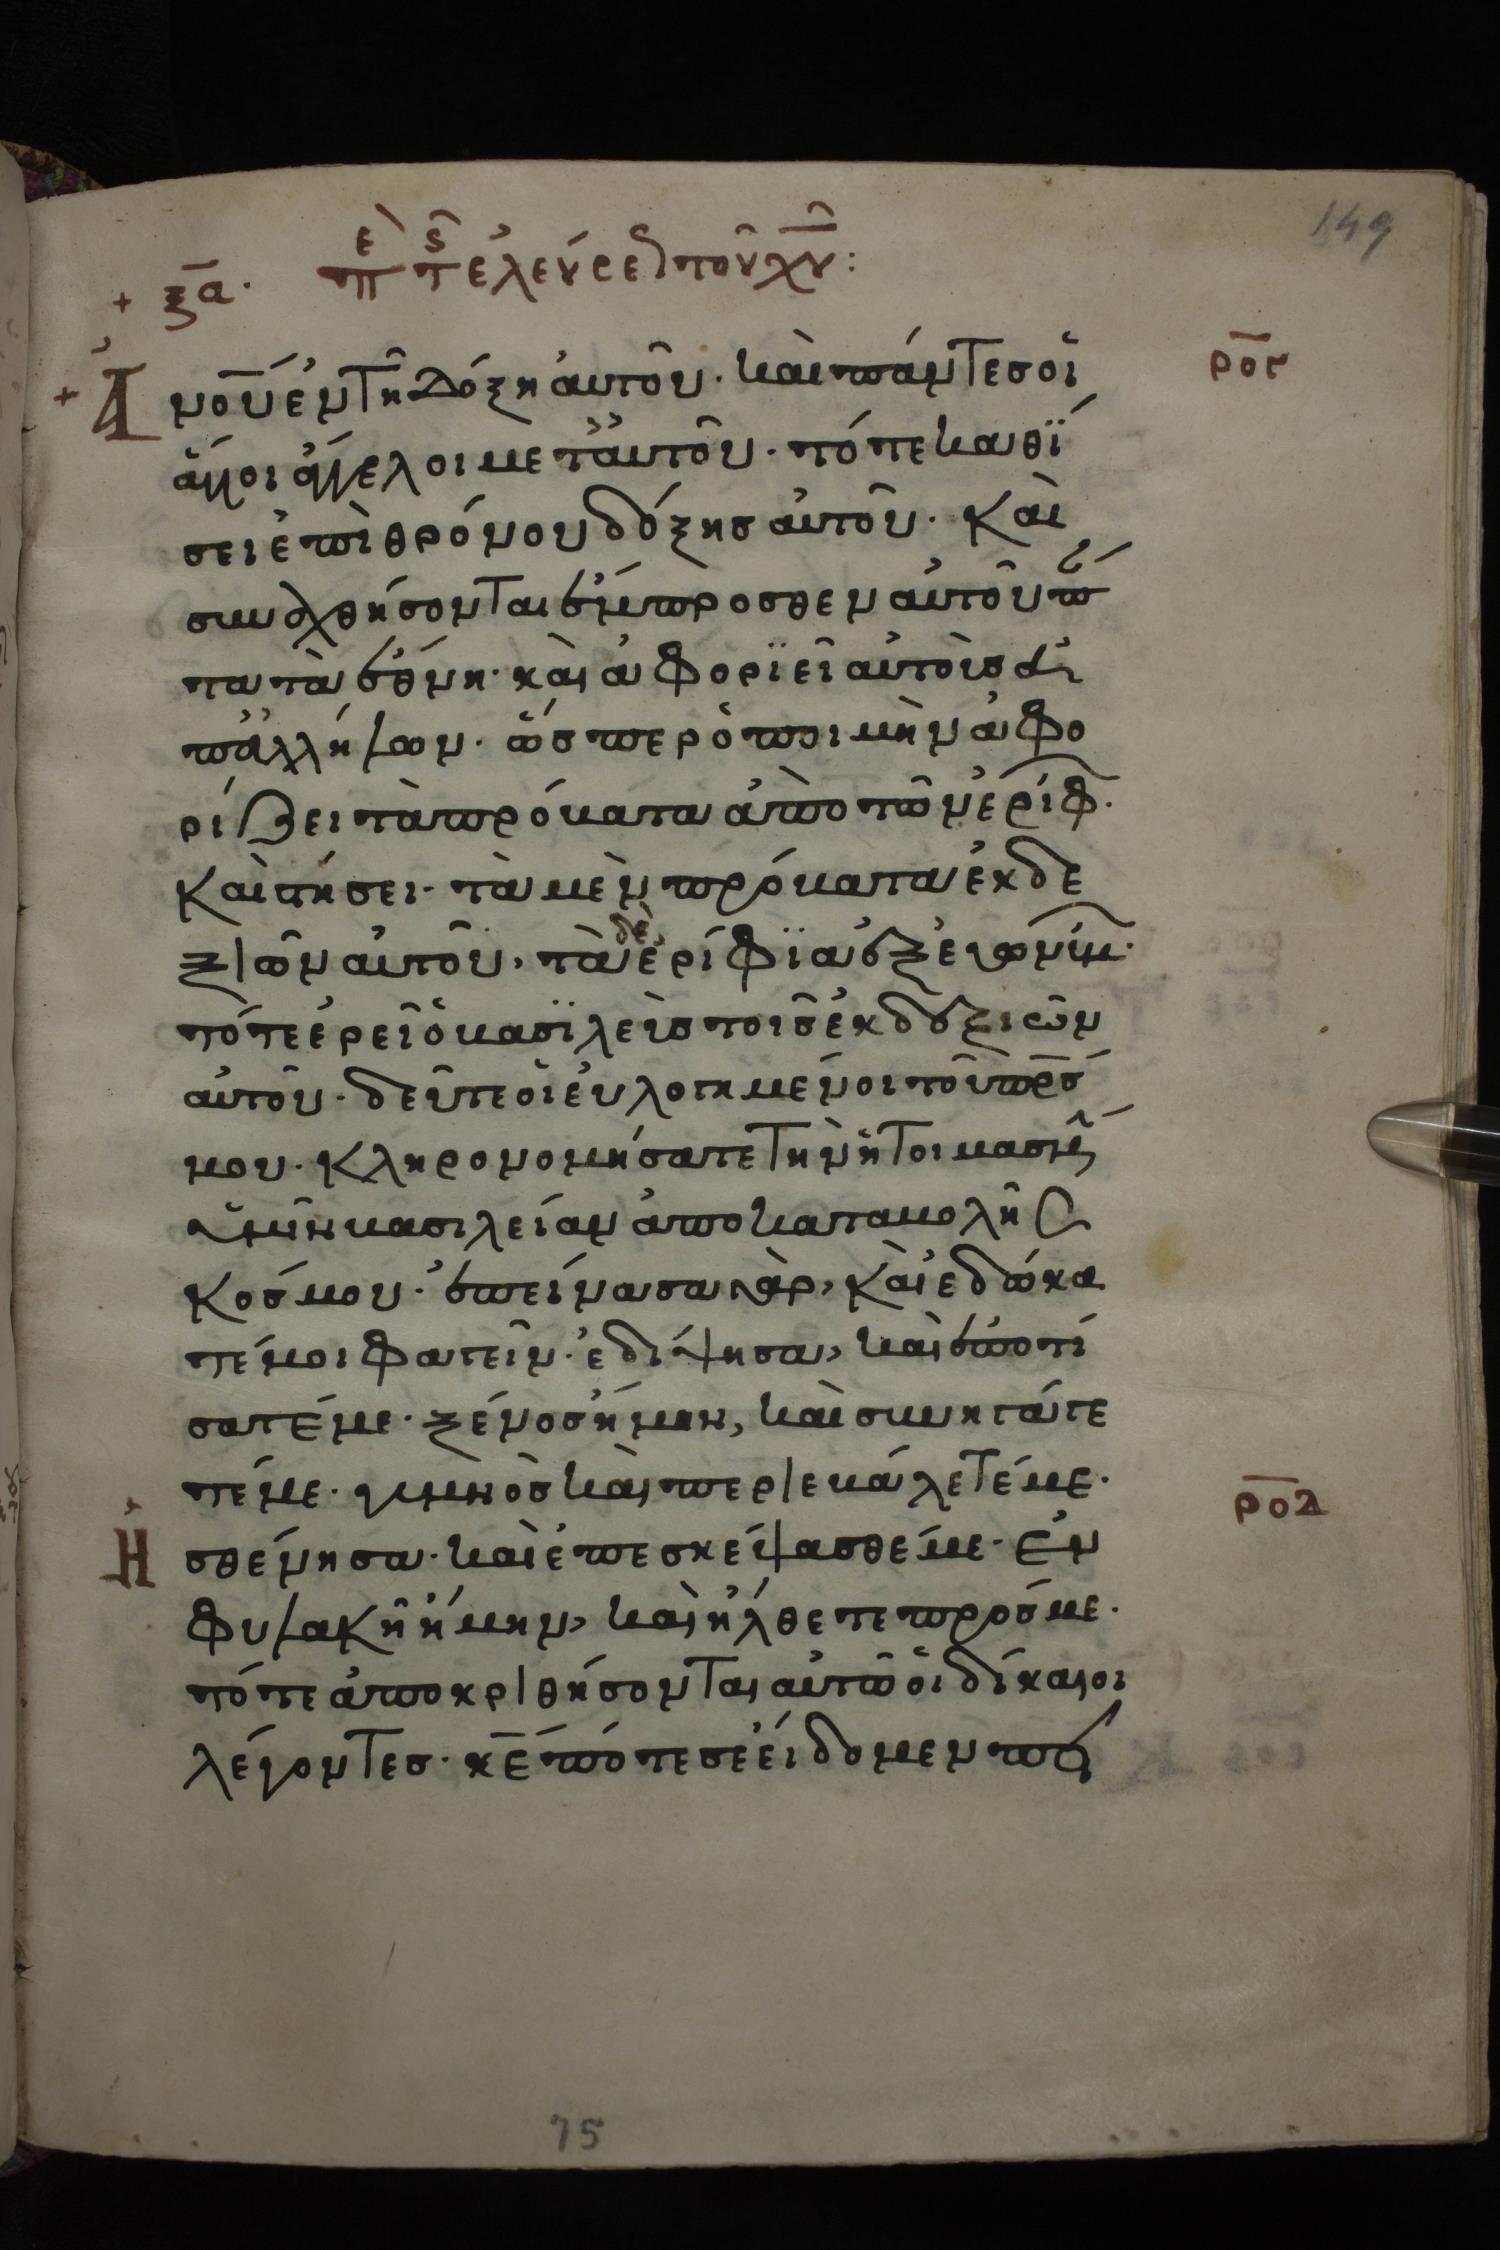 149
+ ξα̅· περὶ τῆς ἐλεύσεως τοῦ χυ̅:
+ Ἀ
νου̅ ἐν τῆ δόξη αὐτοῦ· καὶ πάντες οἱ ρογ̅
ἅγιοι ἄγγελοι μετ' αὐτοῦ· τότε καθΐ
σει ἐπὶ θρόνου δόξης αὐτοῦ· καὶ
συναχθήσονται ἔμπροσθεν αὐτοῦ πάν
τα τὰ ἔθνη· καὶ ἀφορϊεῖ αὐτοὺς ἀ
π' ἀλλήλων· ὥσπερ ὁ ποιμὴν ἀφο
ρίζει τὰ πρόβατα ἀπὸ τῶν ἐρίφ·
καὶ στήσει· τὰ μὲν πρόβατα ἐκ δε
ξιῶν αὐτοῦ, τὰ δὲ ἐρίφϊα ἐξ εὐωνύμ·
τότε ἐρεῖ ὁ βασϊλεὺς τοῖς ἐκ δεξιῶν
αὐτοῦ· δεῦτε οἱ εὐλογημένοι τοῦ πρσ̅
μου· κληρονομήσατε τὴν ἡτοιμασμέν
ὑμῖν βασιλείαν ἀπὸ καταβολῆς
κόσμου· ἐπείνασα γὰρ, καὶ ἐδώκα
τέ μοι φαγεῖν· ἐδίψησα, καὶ ἐποτί
σατέ με· ξένος ἤμην, καὶ συνηγάγε
τέ με· γυμνὸς καὶ περιεβάλετέ με·
Ἠ σθένησα· καὶ ἐπεσκέψασθέ με· ἐν ροδ̅
φυλακῆ ἤμην, καὶ ἤλθετε πρός με·
τότε ἀποκριθήσονται αὐτῶ οἱ δίκαιοι
λέγοντες· κε̅ πότε σὲ εἴδομεν πει
75